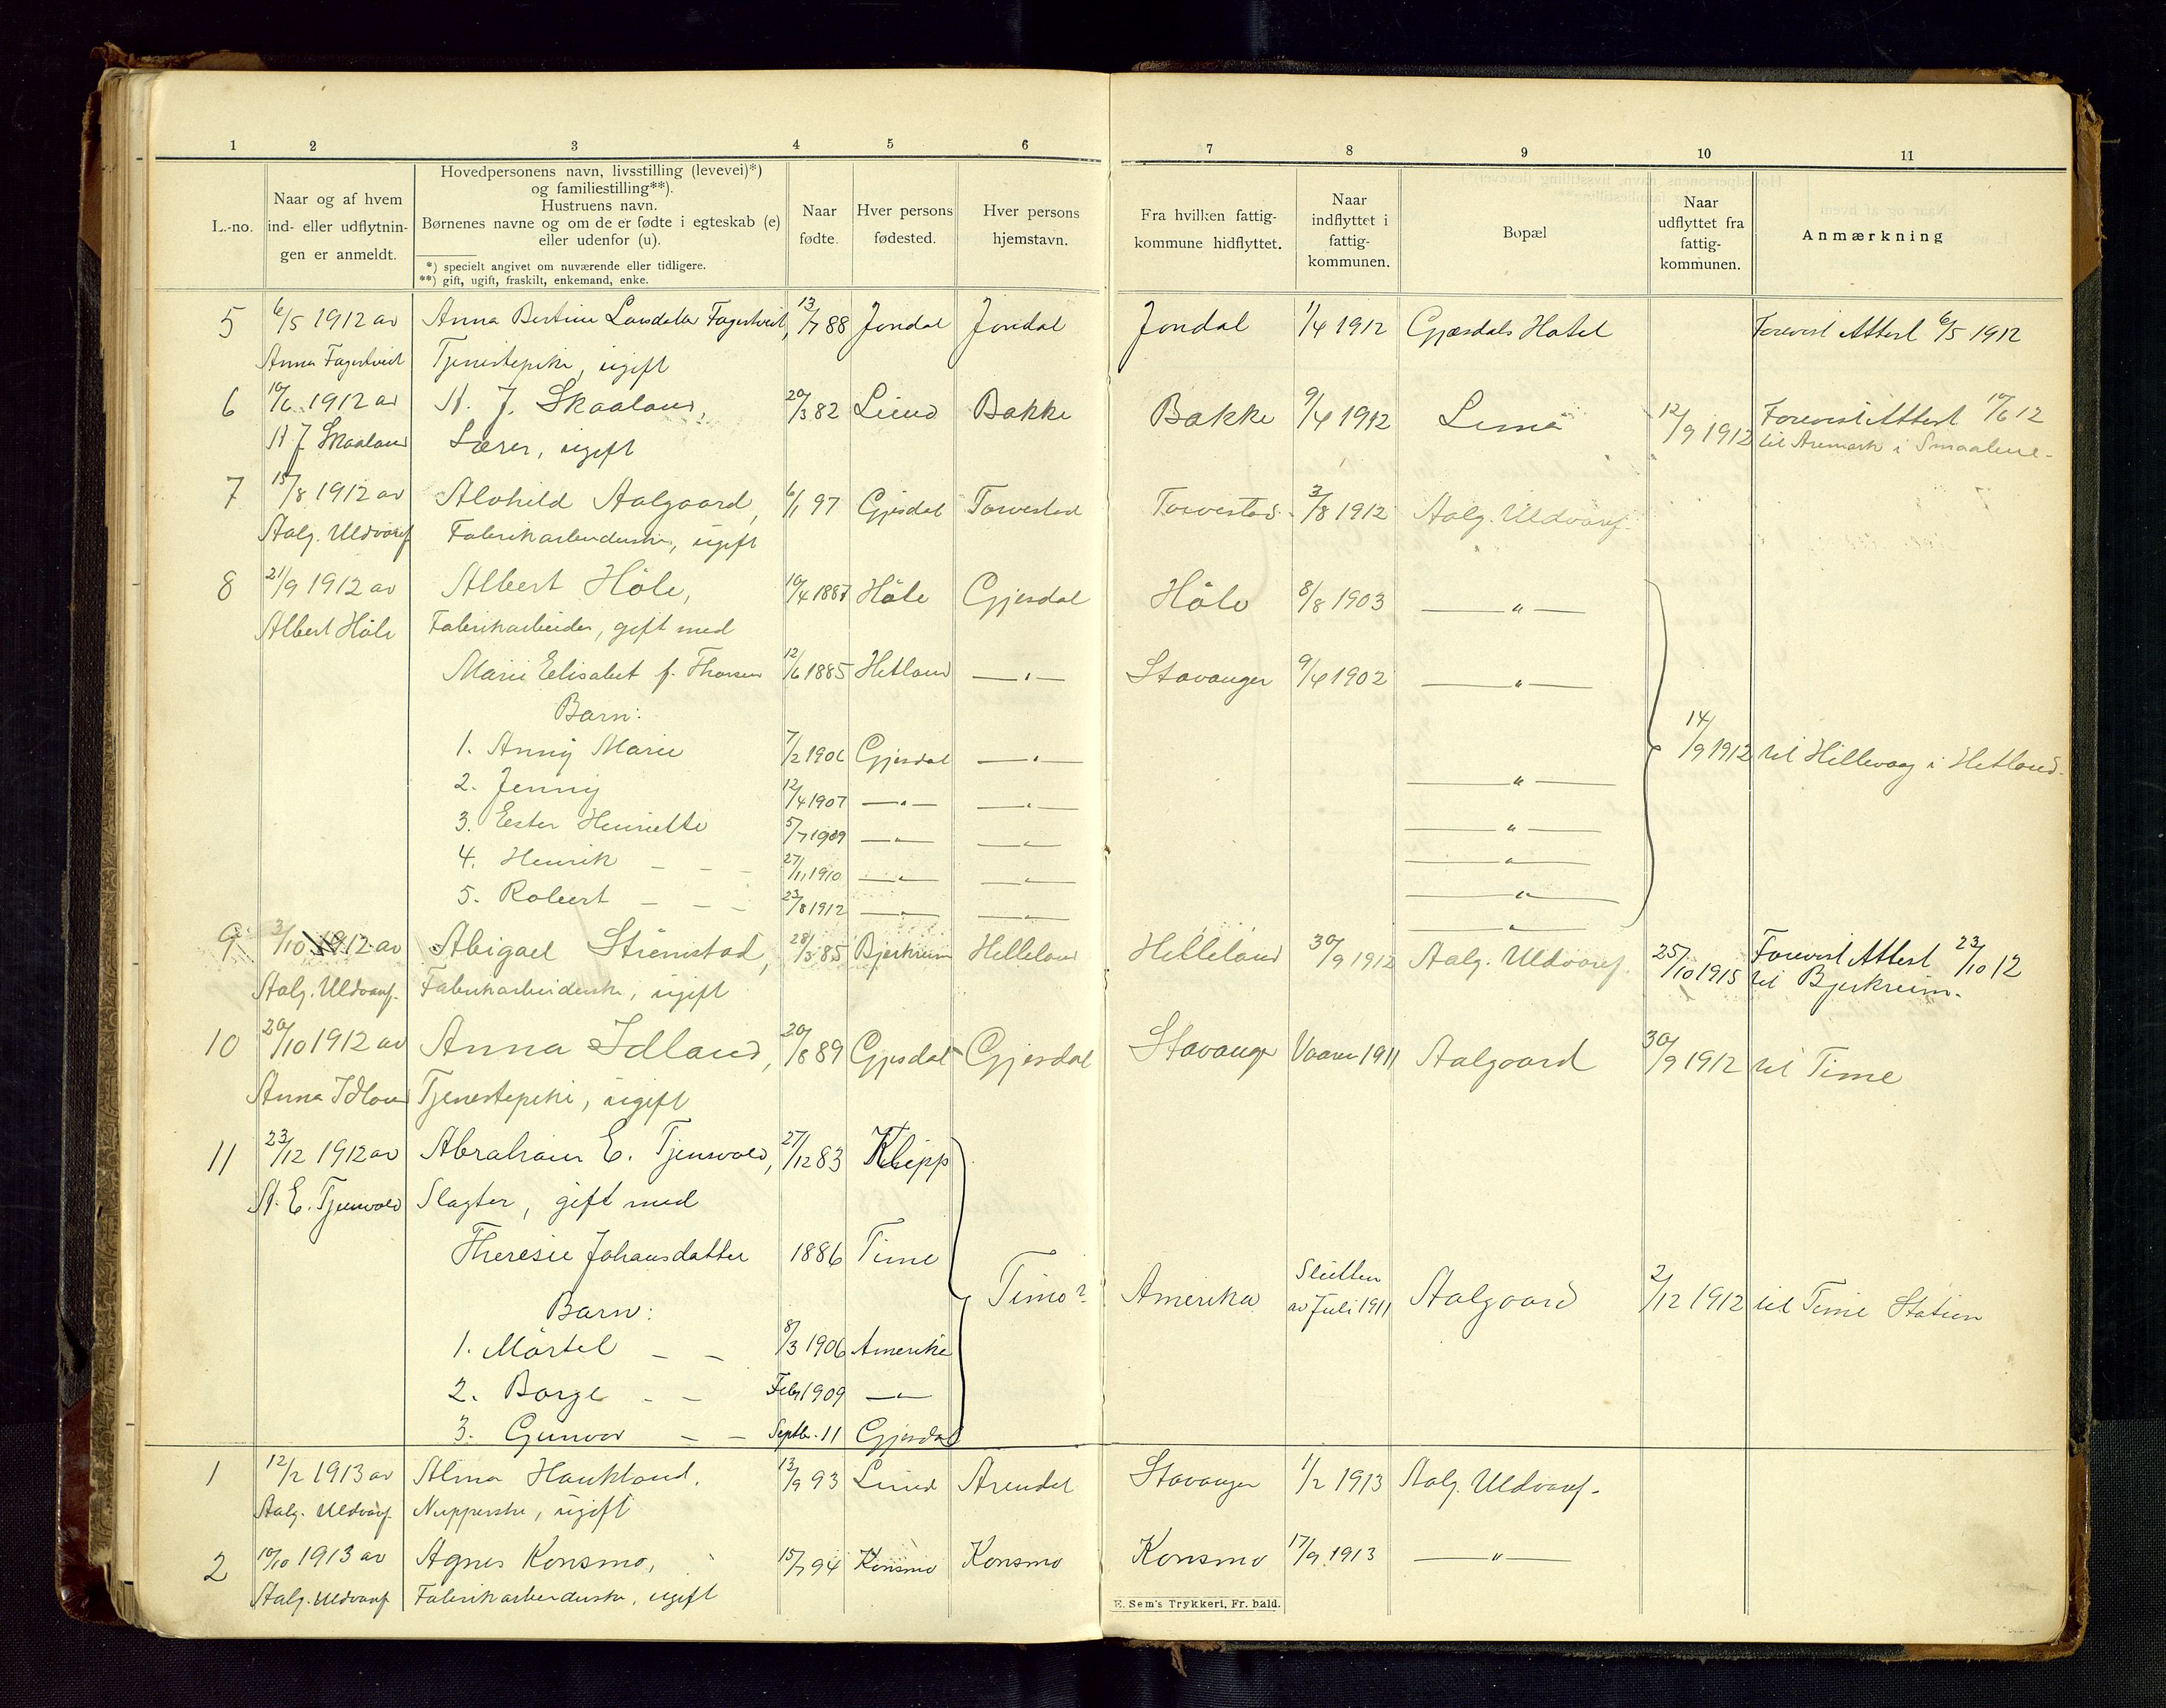 1 2 3 4 5 6 7 8 9 10 11
L.-no.
Naar og af hvem
ind- eller udflytnin-
gen er anmeldt.
Hovedpersonens navn, livsstilling (levevei)*)
og familiestilling**).
Hustruens navn.
Børnenes navne og om de er fødte i egteskab (e)
eller udenfor (u).
*) specielt angivet om nuværende eller tidligere.
**) gift, ugift, fraskilt, enkemand, enke.
Naar
fødte.
Hver persons
fødested.
Hver persons
hjemstavn.
Fra hvilken fattig-
kommune hidflyttet.
Naar
indflyttet i
fattig-
kommunen.
Bopæl
Naar
udflyttet fra
fattig-
kommunen.
Anmærkning
5 6/5 1912 av Anna Bertine Larsdatter Fagertveit, 13/7 88 Jondal Jondal Jondal 1/4 1912 Gjæsdals Hotel Forevist Attest 6/5 1912
Anna Fagertveit Tjenestepike, ugift
6 10/6 1912 av A. J. Skaaland, 20/3 82 Lund Bakke Bakke 9/4 1912 Lima 12/9 1912 Forevist Attest 10/6 12
A J Skaaland Lærer, ugift til Aremark i Smaalene-
7 15/8 1912 av Alvhild Aalgaard, 6/1 97 Gjesdal Torvestad Torvestad 3/8 1912 Aalg. Uldvaref.
Aalg. Uldvaref Fabrikarbeiderske, ugift
8 21/9 1912 av Albert Høle, 10/4 1887 Høle Gjesdal Høle 8/8 1903 — " —
Albert Høle Fabrikarbeider, gift med
Marie Elisabet f. Thorsen 12/6 1885 Hetland — " — Stavanger 9/4 1902 — " —
Barn:
1. Anny Marie 7/2 1906 Gjesdal — " — — " — 14/9 1912 til Hillevaag i Hetland.
2. Jenny 12/4 1907 — " — — " — — " —
3. Ester Henriette 5/7 1909 — " — — " — — " —
4. Henrik — — — 27/11 1910 — " — — " — — " —
5. Robert — — — 23/8 1912 — " — — " — — " —
9 3/10 1912 av Abigael Strømstad, 28/3 85 Bjerkreim Helleland Helleland 30/9 1912 Aalg. Uldvaref. 25/10 1915 Forevist Attest 23/10 12
Aalg. Uldvaref. Fabrikarbeiderske, ugift til Bjerkreim.
10 20/10 1912 av Anna Idland, 20/8 89 Gjesdal Gjesdal Stavanger Vaaren 1911 Aalgaard 30/9 1912 til Time
Anna Idland Tjenestepike, ugift
11 23/12 1912 av Abraham E. Tjensvold, 27/12 83 Klepp
A. E. Tjensvold Slagter, gift med
Theresie Johansdatter 1886 Time
Time? Amerika Slutten av Juli 1911 Aalgaard 2/12 1912 til Time Station
Barn:
1. Mortel — — 8/3 1906 Amerika
2. Borge — — Feb 1909 — " —
3. Gunvor — — Septbr. 11 Gjesdal
1 12/2 1913 av Alma Haukland, 13/9 93 Lund Arendal Stavanger 1/2 1913 Aalg. Uldvaref.
Aalg. Uldvaref. Nupperske, ugift
2 10/10 1913 av Agnes Konsmo, 15/7 94 Konsmo Konsmo Konsmo 17/9 1913 — " —
Aalg. Uldvaref Fabrikarbeiderske, ugift
E. Sem's Trykkeri, Fr. hald.